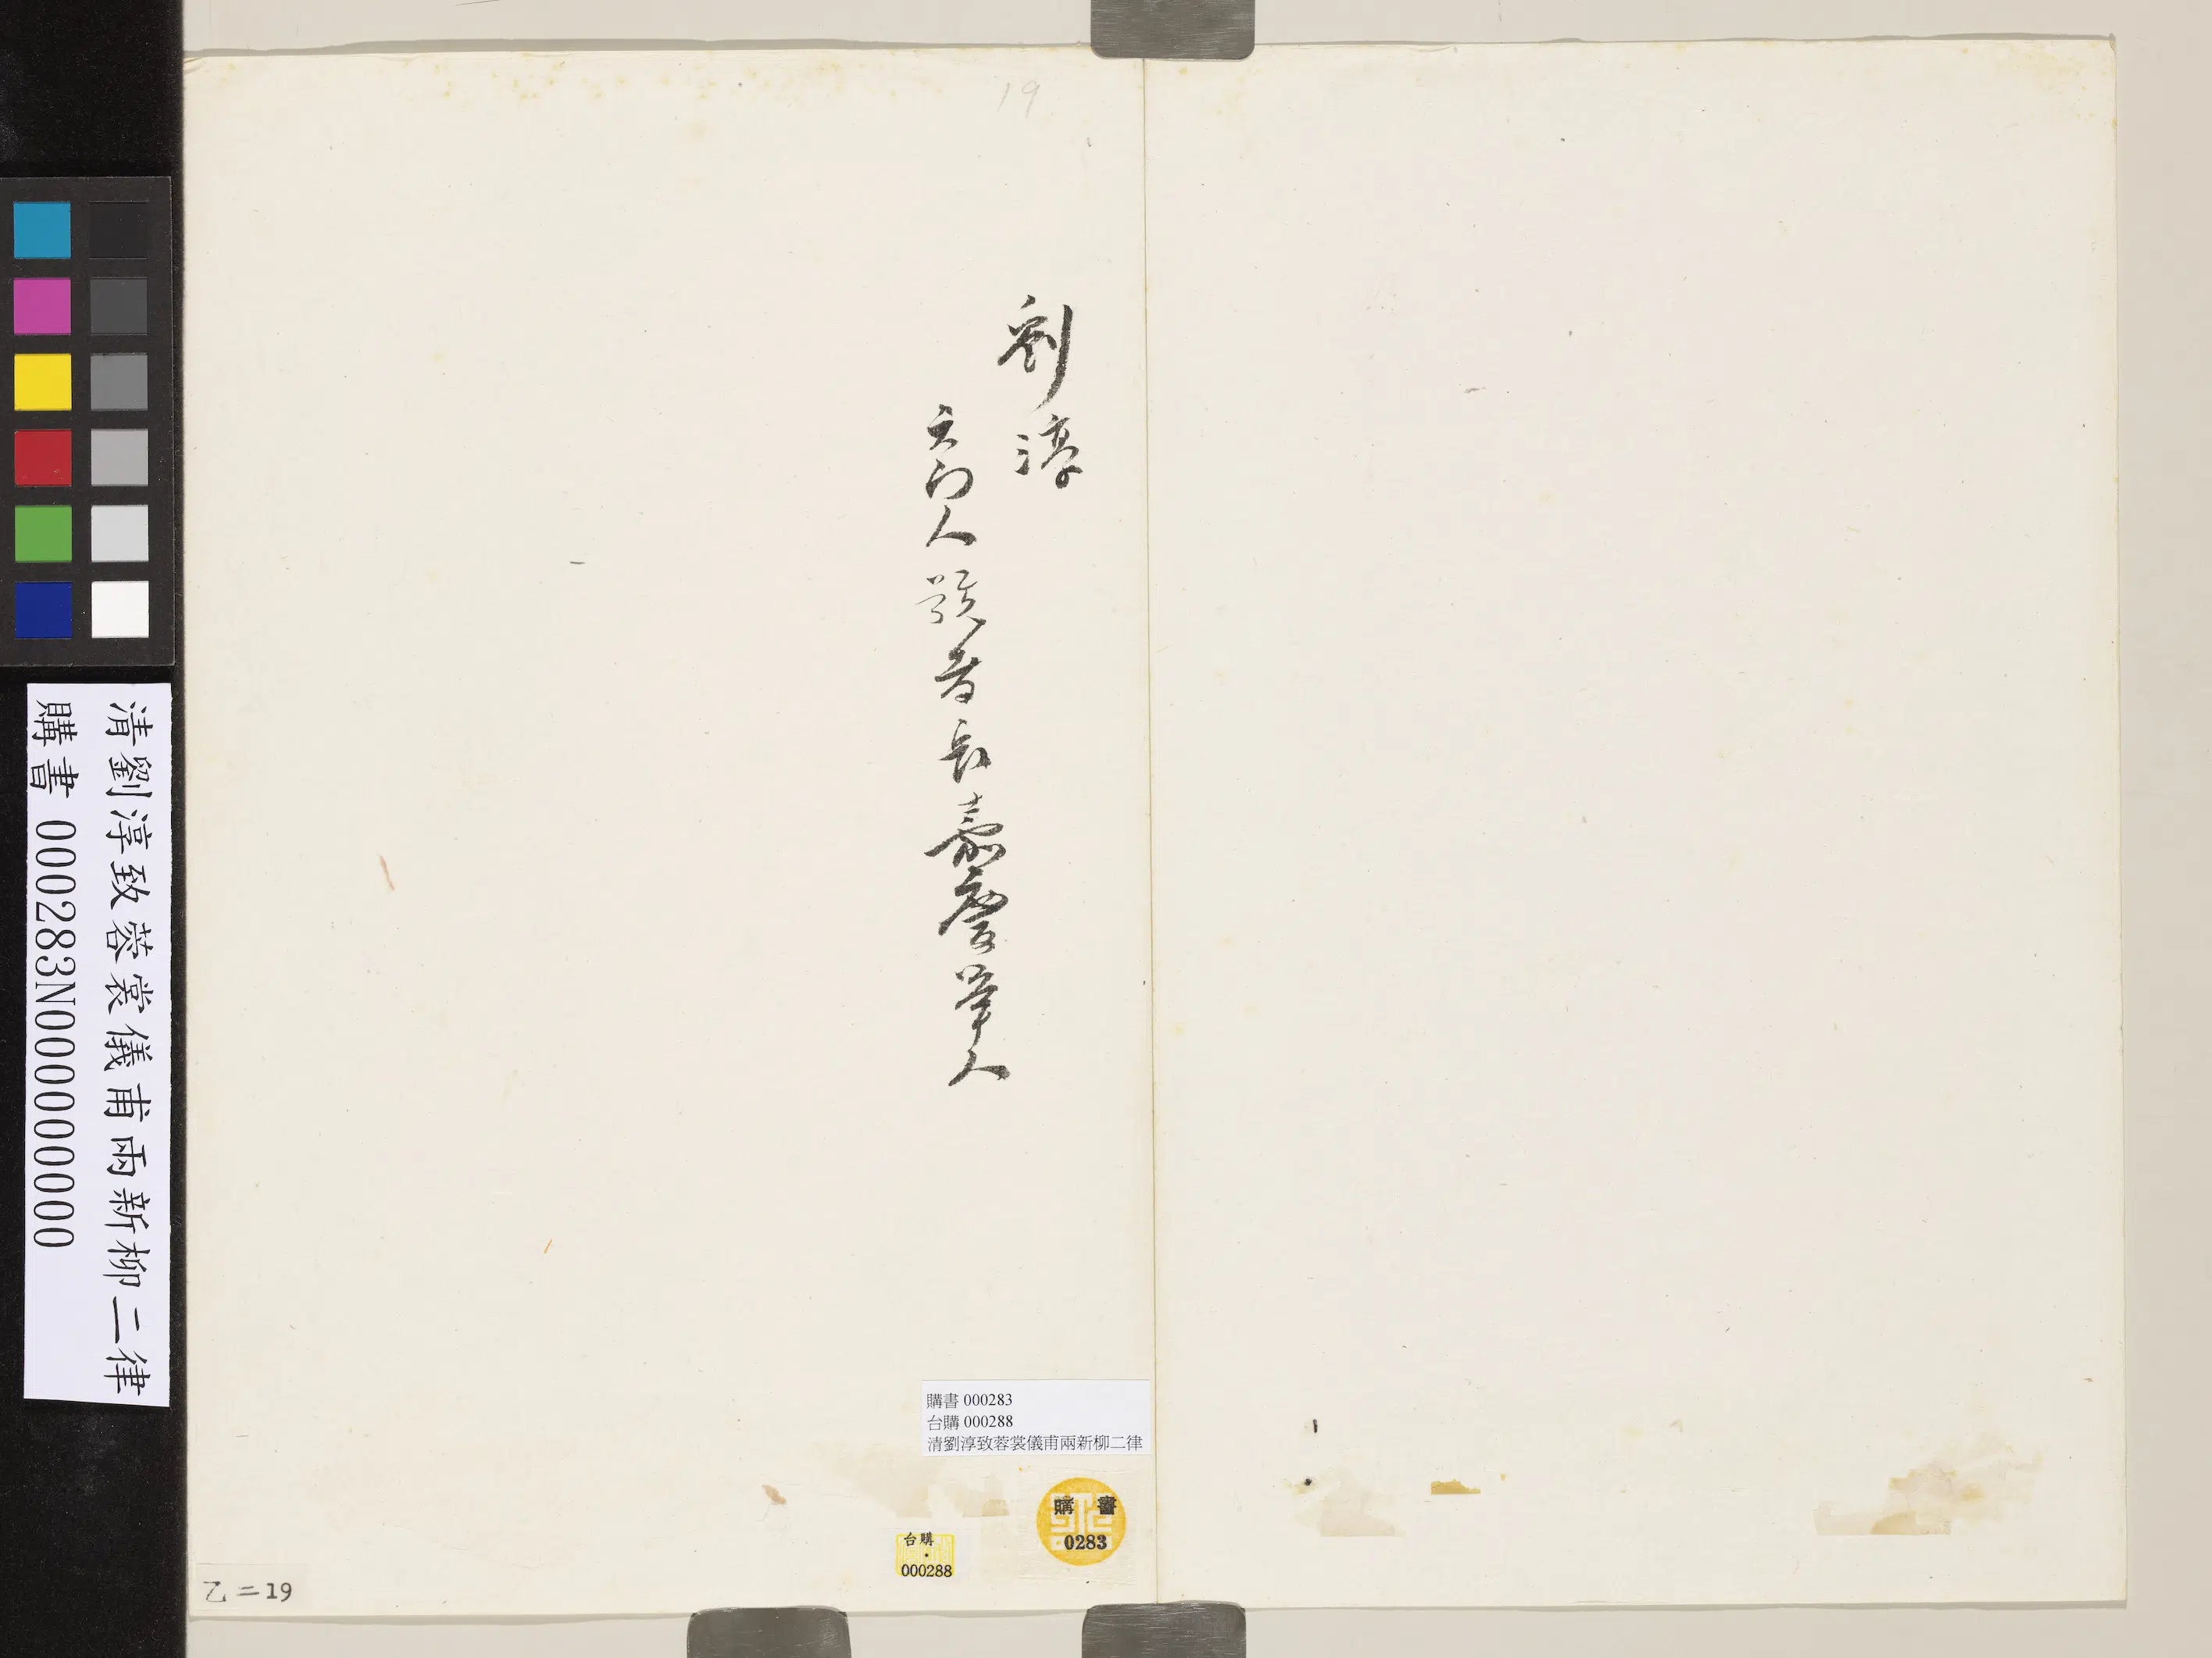 19
劉淳
天门人號孝長嘉慶舉人
清劉淳致蓉裳儀甫兩新柳二律
購書 000283N000000000
購書 000283
台購 000288
清劉淳致蓉裳儀甫兩新柳二律
購 書
0283
台購
000288
乙二19